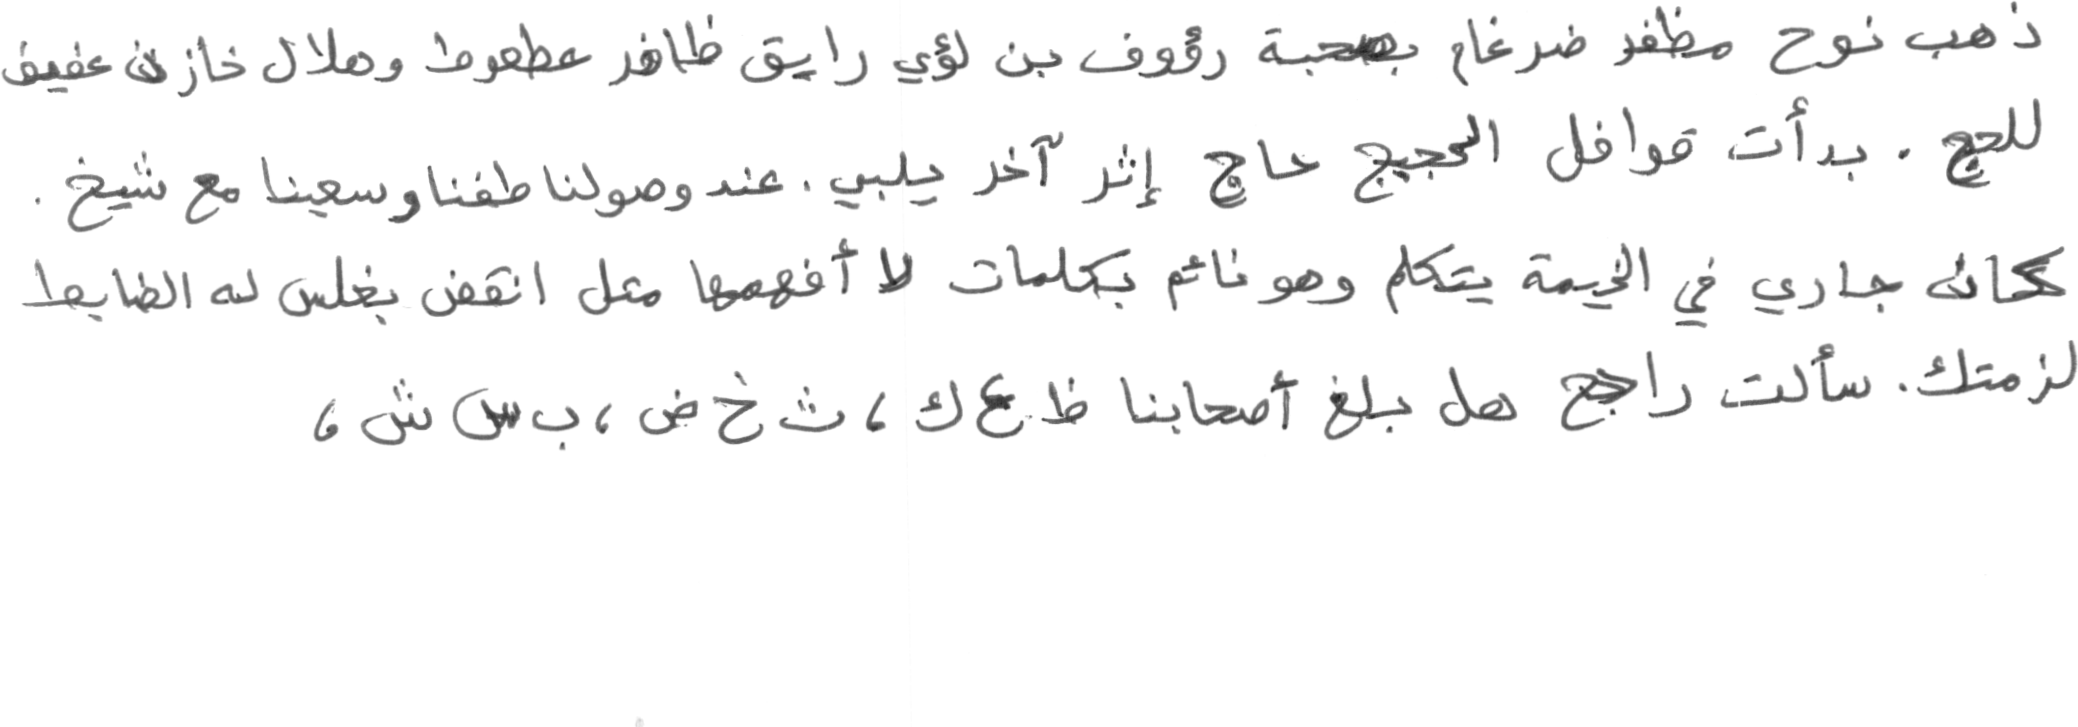 ذهب نوح مظفر ضرغام بصحبة رؤوف بن لؤي رايق ظافر عطعوط وهلال خازن عفيف
للحج . بدأت قوافل الحجيج حاج إثر آخر يلبي . عند وصولنا طفنا وسعينا مع شيخ .
كان جاري في الخيمة يتكلم وهو نائم بكلمات لا أفهمها مثل انقض بغلس له الضابط
لزمتك . سألت راجح هل بلغ أصحابنا ظ ع ك ، ث خ ض ، ب س ش ،